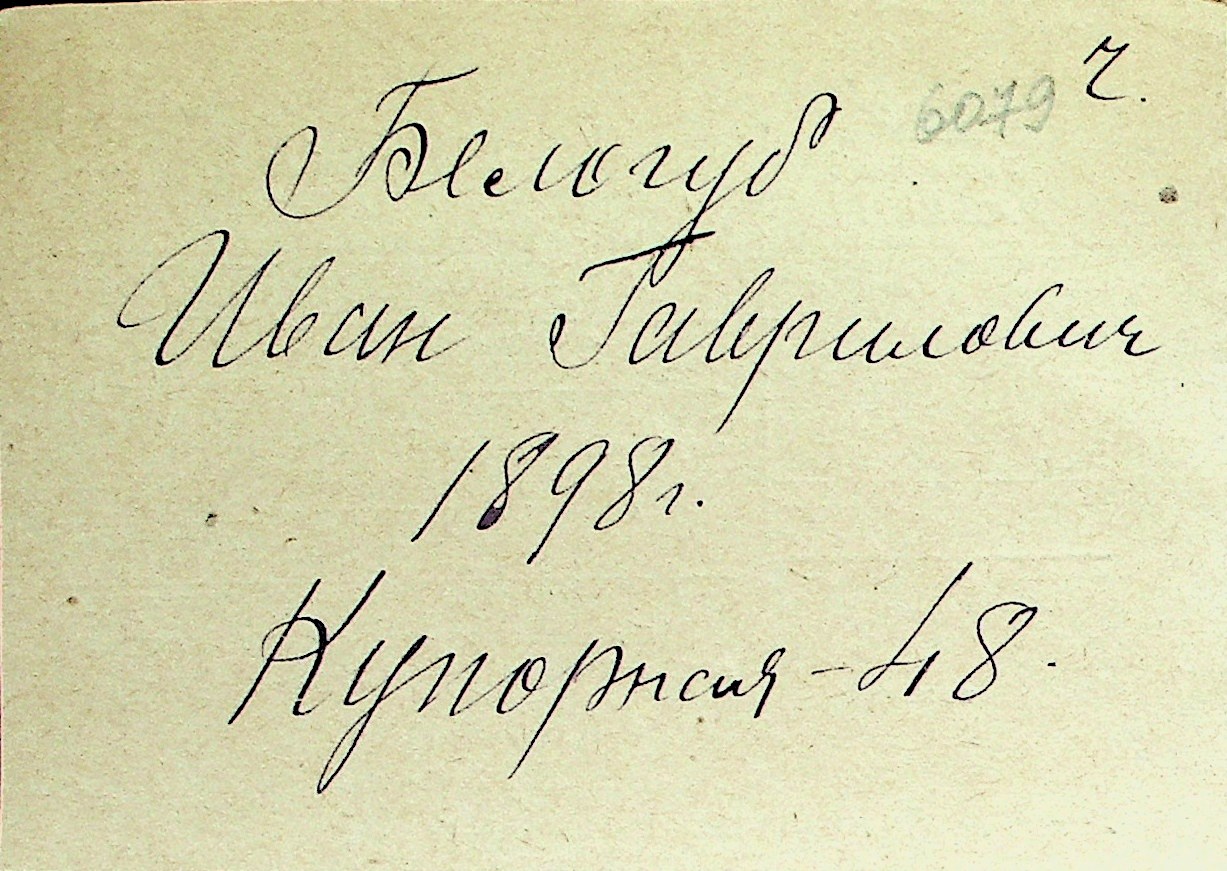 6079 ч.
Белогуб
Иван Гаврилович
1898г.
Купорная - 48.